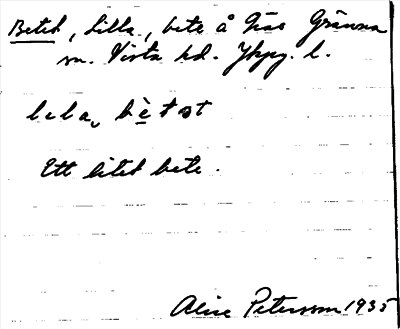 Betet, Lilla, bete å Näs Gränna
sn. Vista hd. Jkpg. l.
lela, bètət
Ett litet bete.
Alice Petersson 1935